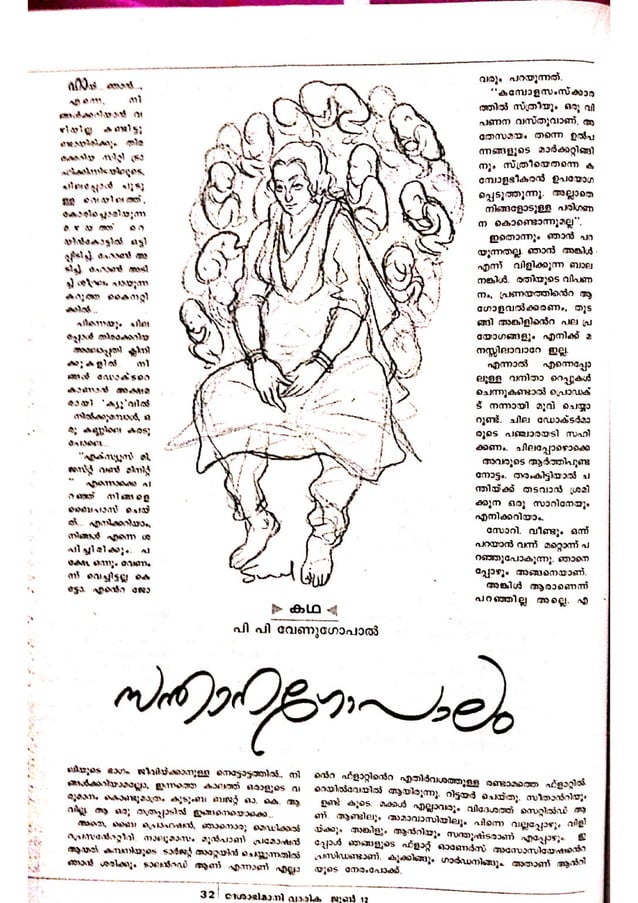 ഹായ്... ഞാൻ...,
എന്നെ, നി
ങ്ങൾക്കറിയാൻ വ
ഴിയില്ല. കണ്ടിട്ടു
ണ്ടായിരിക്കും തിര
ക്കേറിയ സിറ്റി ട്രാ
ഫിക്കിനിടയിലൂടെ,
ചിലപ്പോൾ ചുട്ടു
ള്ള വെയിലത്ത്,
കോരിച്ചൊരിയുന്ന
മഴയത്ത് റെ
യിൻകോട്ടിൽ ഒട്ടി
പ്പിടിച്ച്, ഹോൺ അ
ടിച്ച്, ഹോൺ അടി
ച്ച് ശീഘ്രം പായുന്ന
കറുത്ത കൈനറ്റി
ക്കിൽ...
പിന്നെയും ചില
പ്പോൾ തിരക്കേറിയ
അലോപ്പതി ക്ലിനി
ക്കുകളിൽ. നി
ങ്ങൾ ഡോക്ടറെ
കാണാൻ അക്ഷമ
രായി 'ക്യൂ'വിൽ
നിൽക്കുമ്പോൾ, ഒ
രു കണ്ണിലെ കരടു
പോലെ...
"എക്സ്യൂസ് മി,
ജസ്റ്റ് വൺ മിനിട്ട്
" എന്നൊക്കെ പ
റഞ്ഞ് നിങ്ങളെ
ബൈപാസ് ചെയ്
ത്... എനിക്കറിയാം,
നിങ്ങൾ എന്നെ ശ
പിച്ചിരിക്കും. പ
ക്ഷേ, ഒന്നും വേണം
ന്ന് വെച്ചിട്ടല്ല കെ
ട്ടോ. എന്റെ ജോ
വരും പറയുന്നത്.
"കമ്പോളസംസ്ക്കാര
ത്തിൽ സ്ത്രീയും ഒരു വി
പണന വസ്തുവാണ്. അ
തേസമയം തന്നെ ഉൽപ
ന്നങ്ങളുടെ മാർക്കറ്റിങ്ങി
നും സ്ത്രീയെതന്നെ ക
മ്പോളഭീകരൻ ഉപയോഗ
പ്പെടുത്തുന്നു. അല്ലാതെ
നിങ്ങളോടുള്ള പരിഗണ
ന കൊണ്ടൊന്നുമല്ല".
ഇതൊന്നും ഞാൻ പറ
യുന്നതല്ല. ഞാൻ അങ്കിൾ
എന്ന് വിളിക്കുന്ന ബാല
നങ്കിൾ. രതിയുടെ വിപണ
നം, പ്രണയത്തിന്റെ ആ
ഗോളവൽക്കരണം, തുട
ങ്ങി അങ്കിളിന്റെ പല പ്ര
യോഗങ്ങളും എനിക്ക് മ
നസ്സിലാവാറേ ഇല്ല.
എന്നാൽ എന്നെപ്പോ
ലുള്ള വനിതാ റെപ്പുകൾ
ചെന്നുകണ്ടാൽ പ്രൊഡക്
ട് നന്നായി മൂവ് ചെയ്യാ
റുണ്ട്. ചില ഡോക്ടർമാ
രുടെ പഞ്ചാരയടി സഹി
ക്കണം. ചിലപ്പോഴൊക്കെ
അവരുടെ ആർത്തിപൂണ്ട
നോട്ടം. തരംകിട്ടിയാൽ ച
ന്തിയ്ക്ക് തടവാൻ ശ്രമി
ക്കുന്ന ഒരു സാറിനേയും
എനിക്കറിയാം.
സോറി. വീണ്ടും ഒന്ന്
പറയാൻ വന്ന് മറ്റൊന്ന് പ
റഞ്ഞുപോകുന്നു. ഞാനെ
പ്പോഴും അങ്ങനെയാണ്.
അങ്കിൾ ആരാണെന്ന്
പറഞ്ഞില്ല അല്ലെ. എ
കഥ
പി പി വേണുഗോപാൽ
സന്താനഗോപാലം
ലിയുടെ ഭാഗം. ജീവിയ്ക്കാനുള്ള നെട്ടോട്ടത്തിൽ. നി
ങ്ങൾക്കറിയാമല്ലോ, ഇന്നത്തെ കാലത്ത് ഒരാളുടെ വ
രുമാനം കൊണ്ടുമാത്രം കുടുംബ ബജറ്റ് ഓ. കെ. ആ
വില്ല. ആ ഒരു തത്രപ്പാടിൽ ഇങ്ങനെയൊക്കെ...
അതെ, ബൈ പ്രൊഫഷൻ, ഞാനൊരു മെഡിക്കൽ
റപ്രസന്റേറ്റീവ്. നാലുമാസം മുൻപാണ് പ്രമോഷൻ
ആയത്. കമ്പനിയുടെ ടാർജറ്റ് അറ്റേയിൻ ചെയ്യുന്നതിൽ
ഞാൻ ശരിക്കും ടാലൻറഡ് ആണ് എന്നാണ് എല്ലാ
ന്റെ ഫ്ളാറ്റിന്റെ എതിർവശത്തുള്ള രണ്ടാമത്തെ ഫ്ളാറ്റിൽ.
റെയിൽവേയിൽ ആയിരുന്നു. റിട്ടയർ ചെയ്തു. സീതാൻറിയും
ഉണ്ട് കൂടെ. മക്കൾ എല്ലാവരും വിദേശത്ത് സെറ്റിൽഡ് ആ
ണ്. ആണ്ടിലും അമാവാസിയിലും പിന്നെ വല്ലപ്പോഴും വിളി
യ്ക്കും. അങ്കിളും ആൻറിയും സന്തുഷ്ടരാണ് എപ്പോഴും. ഇ
പ്പോൾ ഞങ്ങളുടെ ഫ്ളാറ്റ് ഓണേഴ്സ് അസോസിയേഷന്റെ
പ്രസിഡണ്ടാണ്. കുക്കിങ്ങും ഗാർഡനിങ്ങും. അതാണ് ആൻറി
യുടെ നേരംപോക്ക്.
32 ദേശാഭിമാനി വാരിക ജൂൺ 12